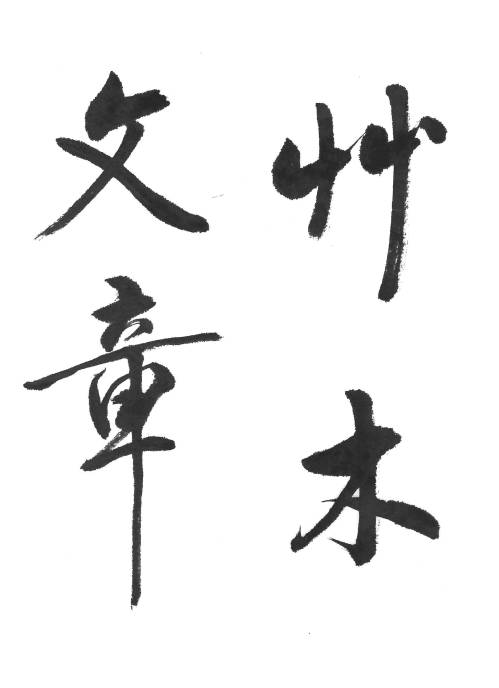 艸木
文章